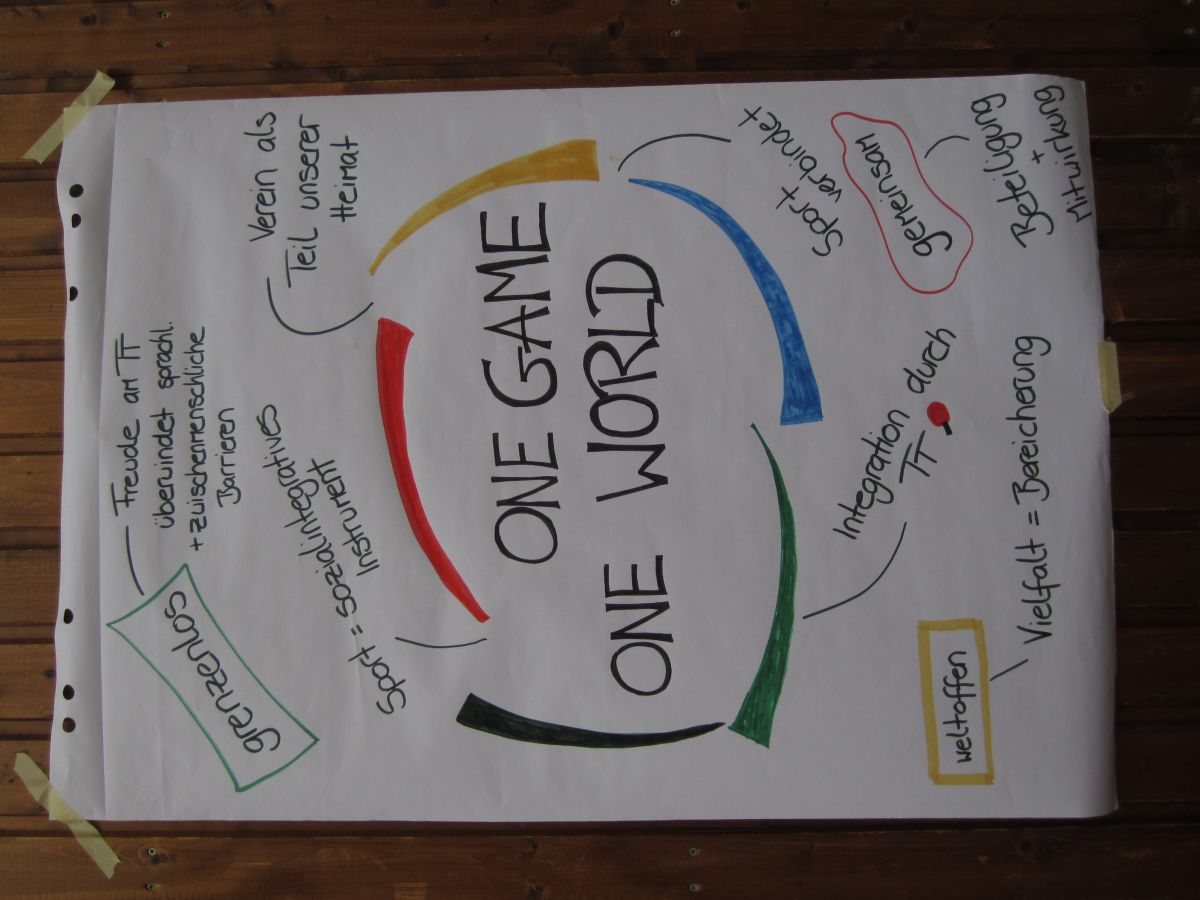 grenzenlos
Freude am TT
überwindet sprachl.
+ zwischenmenschliche
Barrieren
Verein als
Teil unserer
Heimat
Sport = sozialintegratives
Instrument
ONE GAME
ONE WORLD
Sport
verbindet
gemeinsam
Beteiligung
+
Mitwirkung
Integration durch
TT
weltoffen
Vielfalt = Bereicherung